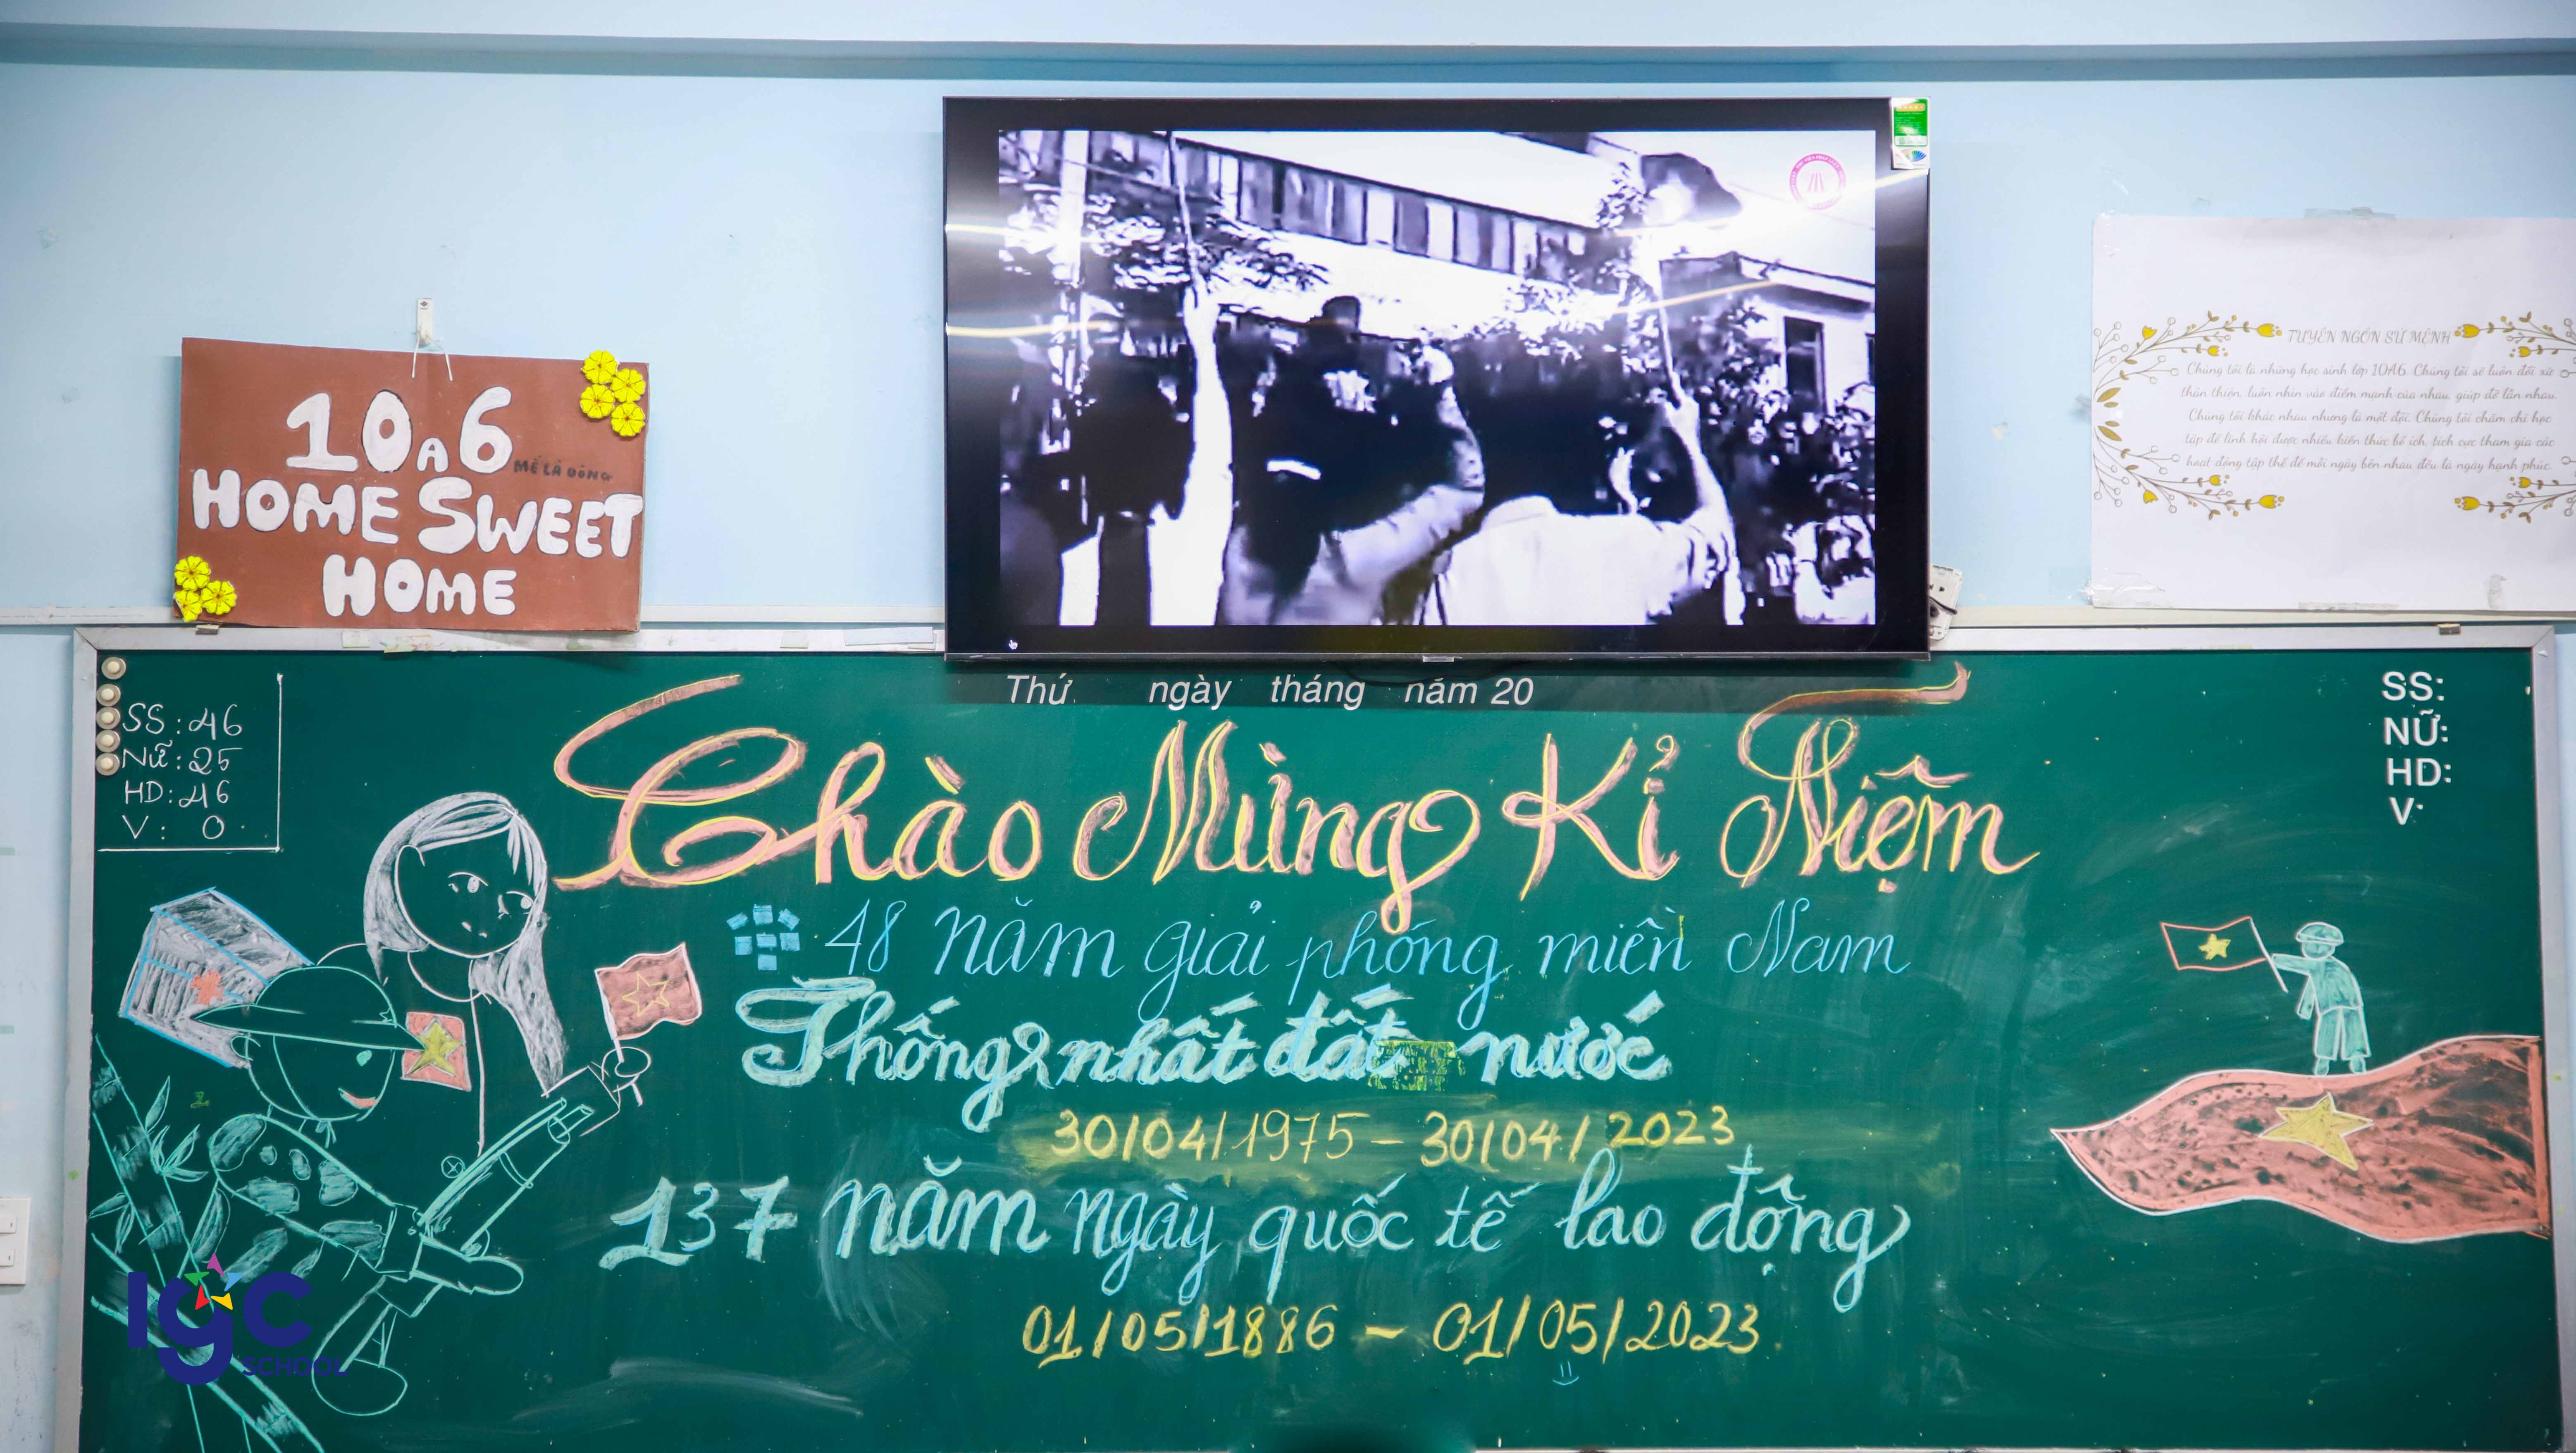 10A6
MÊ LÀ ĐÔNG
HOME SWEET
HOME
TUYÊN NGÔN SỨ MỆNH
Chúng tôi là những học sinh lớp 10A6. Chúng tôi sẽ luôn đối xử
thân thiện, luôn nhìn vào điểm mạnh của nhau, giúp đỡ lẫn nhau.
Chúng tôi khác nhau nhưng là một đội. Chúng tôi chăm chỉ học
tập để lĩnh hội được nhiều kiến thức bổ ích, tích cực tham gia các
hoạt động tập thể để mỗi ngày bên nhau đều là ngày hạnh phúc.
Thứ ngày tháng năm 20
SS: 46
Nữ: 25
HD: 46
V: 0
SS:
NỮ:
HD:
V:
Chào Mừng Kỉ Niệm
48 năm giải phóng miền Nam
Thống nhất đất nước
30/04/1975 - 30/04/2023
137 năm ngày quốc tế lao động
01/05/1886 - 01/05/2023
IGC
SCHOOL